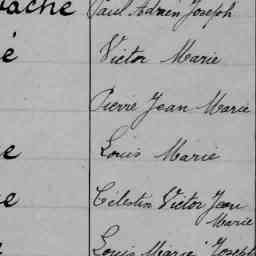 vache Paul Adrien Joseph
é Victor Marie
Pierre Jean Marie
e Louis Marie
e Célestin Victor Jean
Marie
Louis Marie Joseph